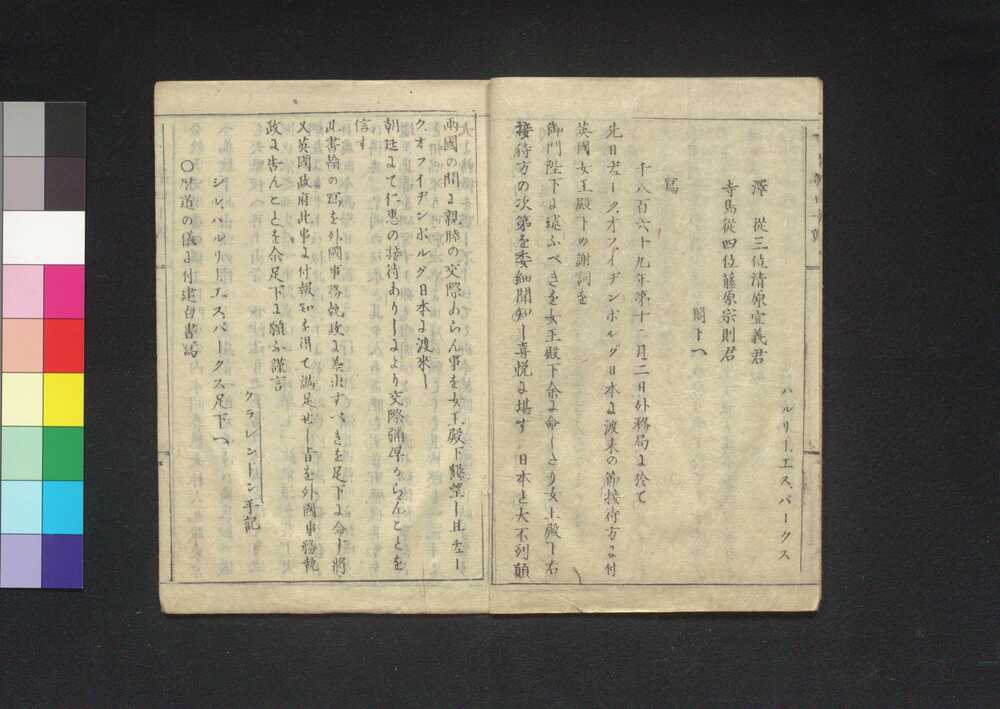 ハルリー、エス、パークス
澤　從三位清原宣義君
寺島從四位藤原宗則君
閣下へ
寫
千八百六十九年第十二月二日外務局に於て
先日ヂューク、オフ、イヂンボルグ日本に渡来の節接待方に付
英國女王殿下の謝詞を
御門陛下に述ふべきを女王殿下余に命したり女王殿下右
接待方の次第を委細聞知し喜悦に堪す　日本と大不列顛
兩國の間に親睦の交際あらん事を女王殿下懇望し且ヂュー
ク、オフ、イヂンボルグ日本に渡来し
朝廷にて仁惠の接待ありしにより交際彌厚からんことを
信す
此書翰の寫を外國事務執政に差出すべきを足下に命す將
又英國政府此事に付報知を得て満足せし旨を外國事務執
政に告んことを余足下に願ふ謹言
クラレンドン手記
シル、ハルリー、エス、パークス足下へ
の儀に付建白書寫